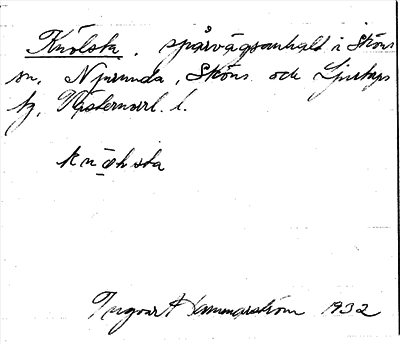 Knölsta. spårvägsanhalt i Sköns
sn, Njurunda, Sköns och Ljustorps
tg, Västernorrl. l.
Ingvar Hammarström 1932